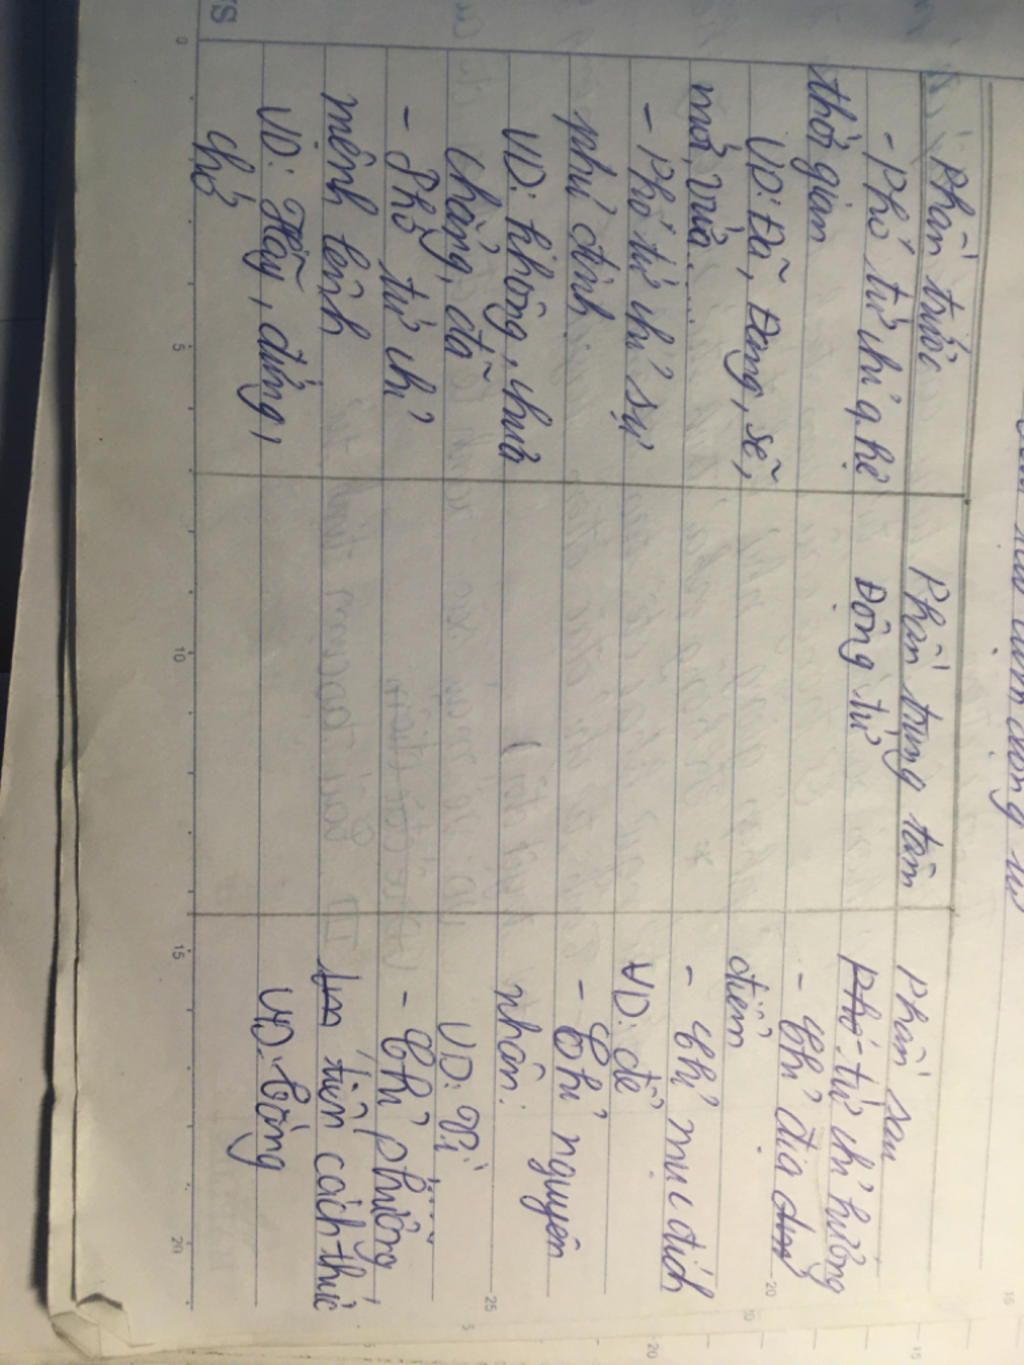 Phần trước
- Phó từ chỉ q.hệ
thời gian
VD: Đã, Đang, sẽ,
mới, vừa.....
- Phó từ chỉ sự
phủ định.
VD: không, chưa
chẳng, đã
- Phó từ chỉ
mệnh lệnh
VD: Hãy, đừng,
chớ
Phần trung tâm
Động từ
Phần sau
Phó từ chỉ hướng
- Chỉ địa
điểm
- Chỉ mục đích
VD: để
- Chỉ nguyên
nhân:
VD: Vì
- Chỉ phương
tiện cách thức
VD: bằng